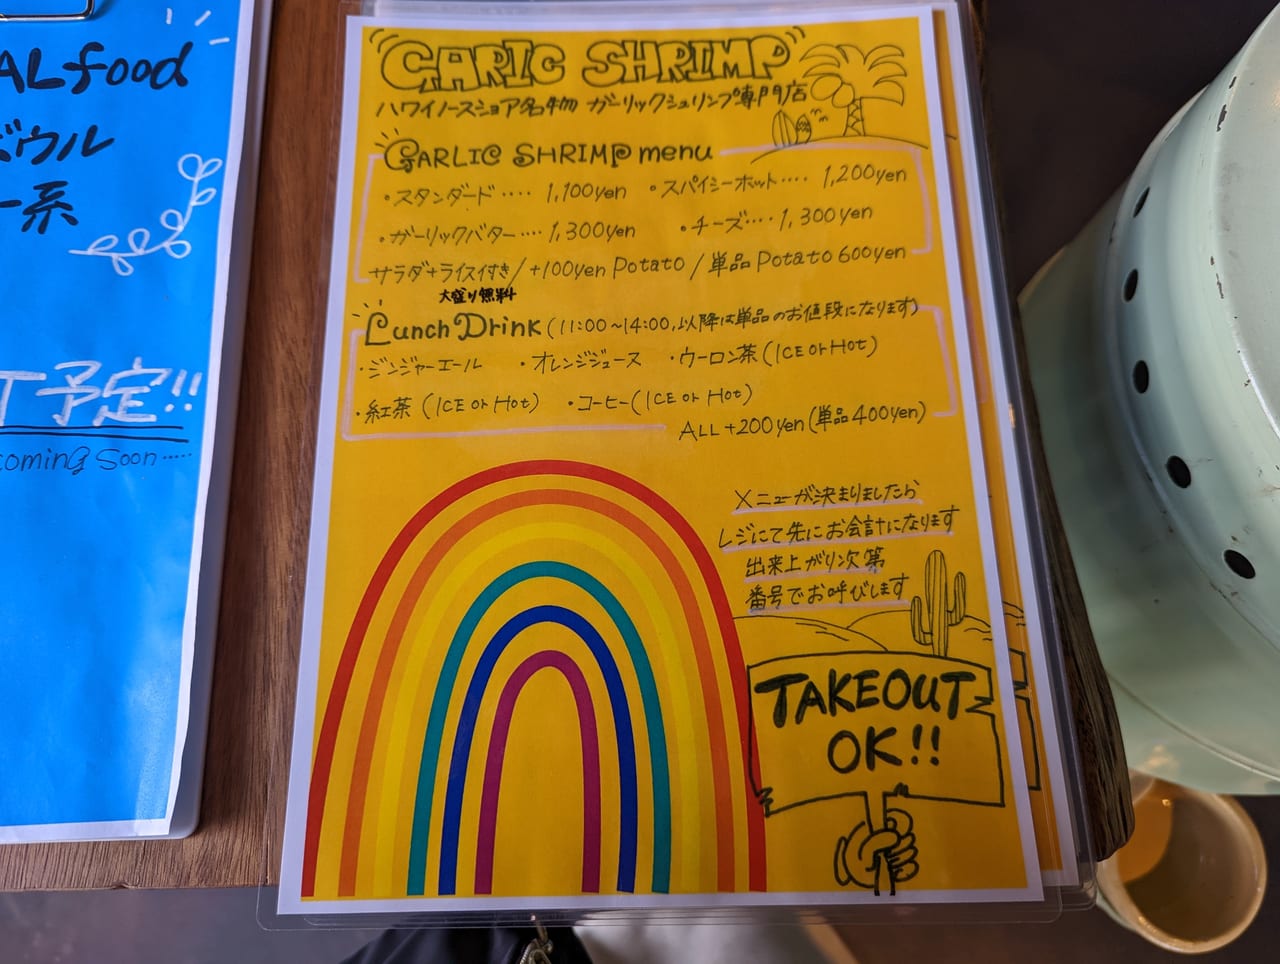 ALfood
ボウル
ー系
T予定!!
coming Soon‥‥
GARIC SHRIMP
ハワイノースショア名物 ガーリックシュリンプ専門店
GARLIC SHRIMP menu
・スタンダード‥‥ 1,100yen ・スパイシーホット‥‥ 1,200yen
・ガーリックバター‥‥ 1,300yen ・チーズ‥‥ 1,300yen
サラダ+ライス付き/+100yen Potato/単品 Potato 600yen
大盛り無料
Lunch Drink(11:00~14:00,以降は単品のお値段になります)
・ジンジャーエール ・オレンジジュース ・ウーロン茶(ICE or Hot)
・紅茶(ICE or Hot) ・コーヒー(ICE or Hot)
ALL +200yen(単品400yen)
メニューが決まりましたら
レジにて先にお会計になります
出来上がり次第
番号でお呼びします
TAKEOUT
OK!!